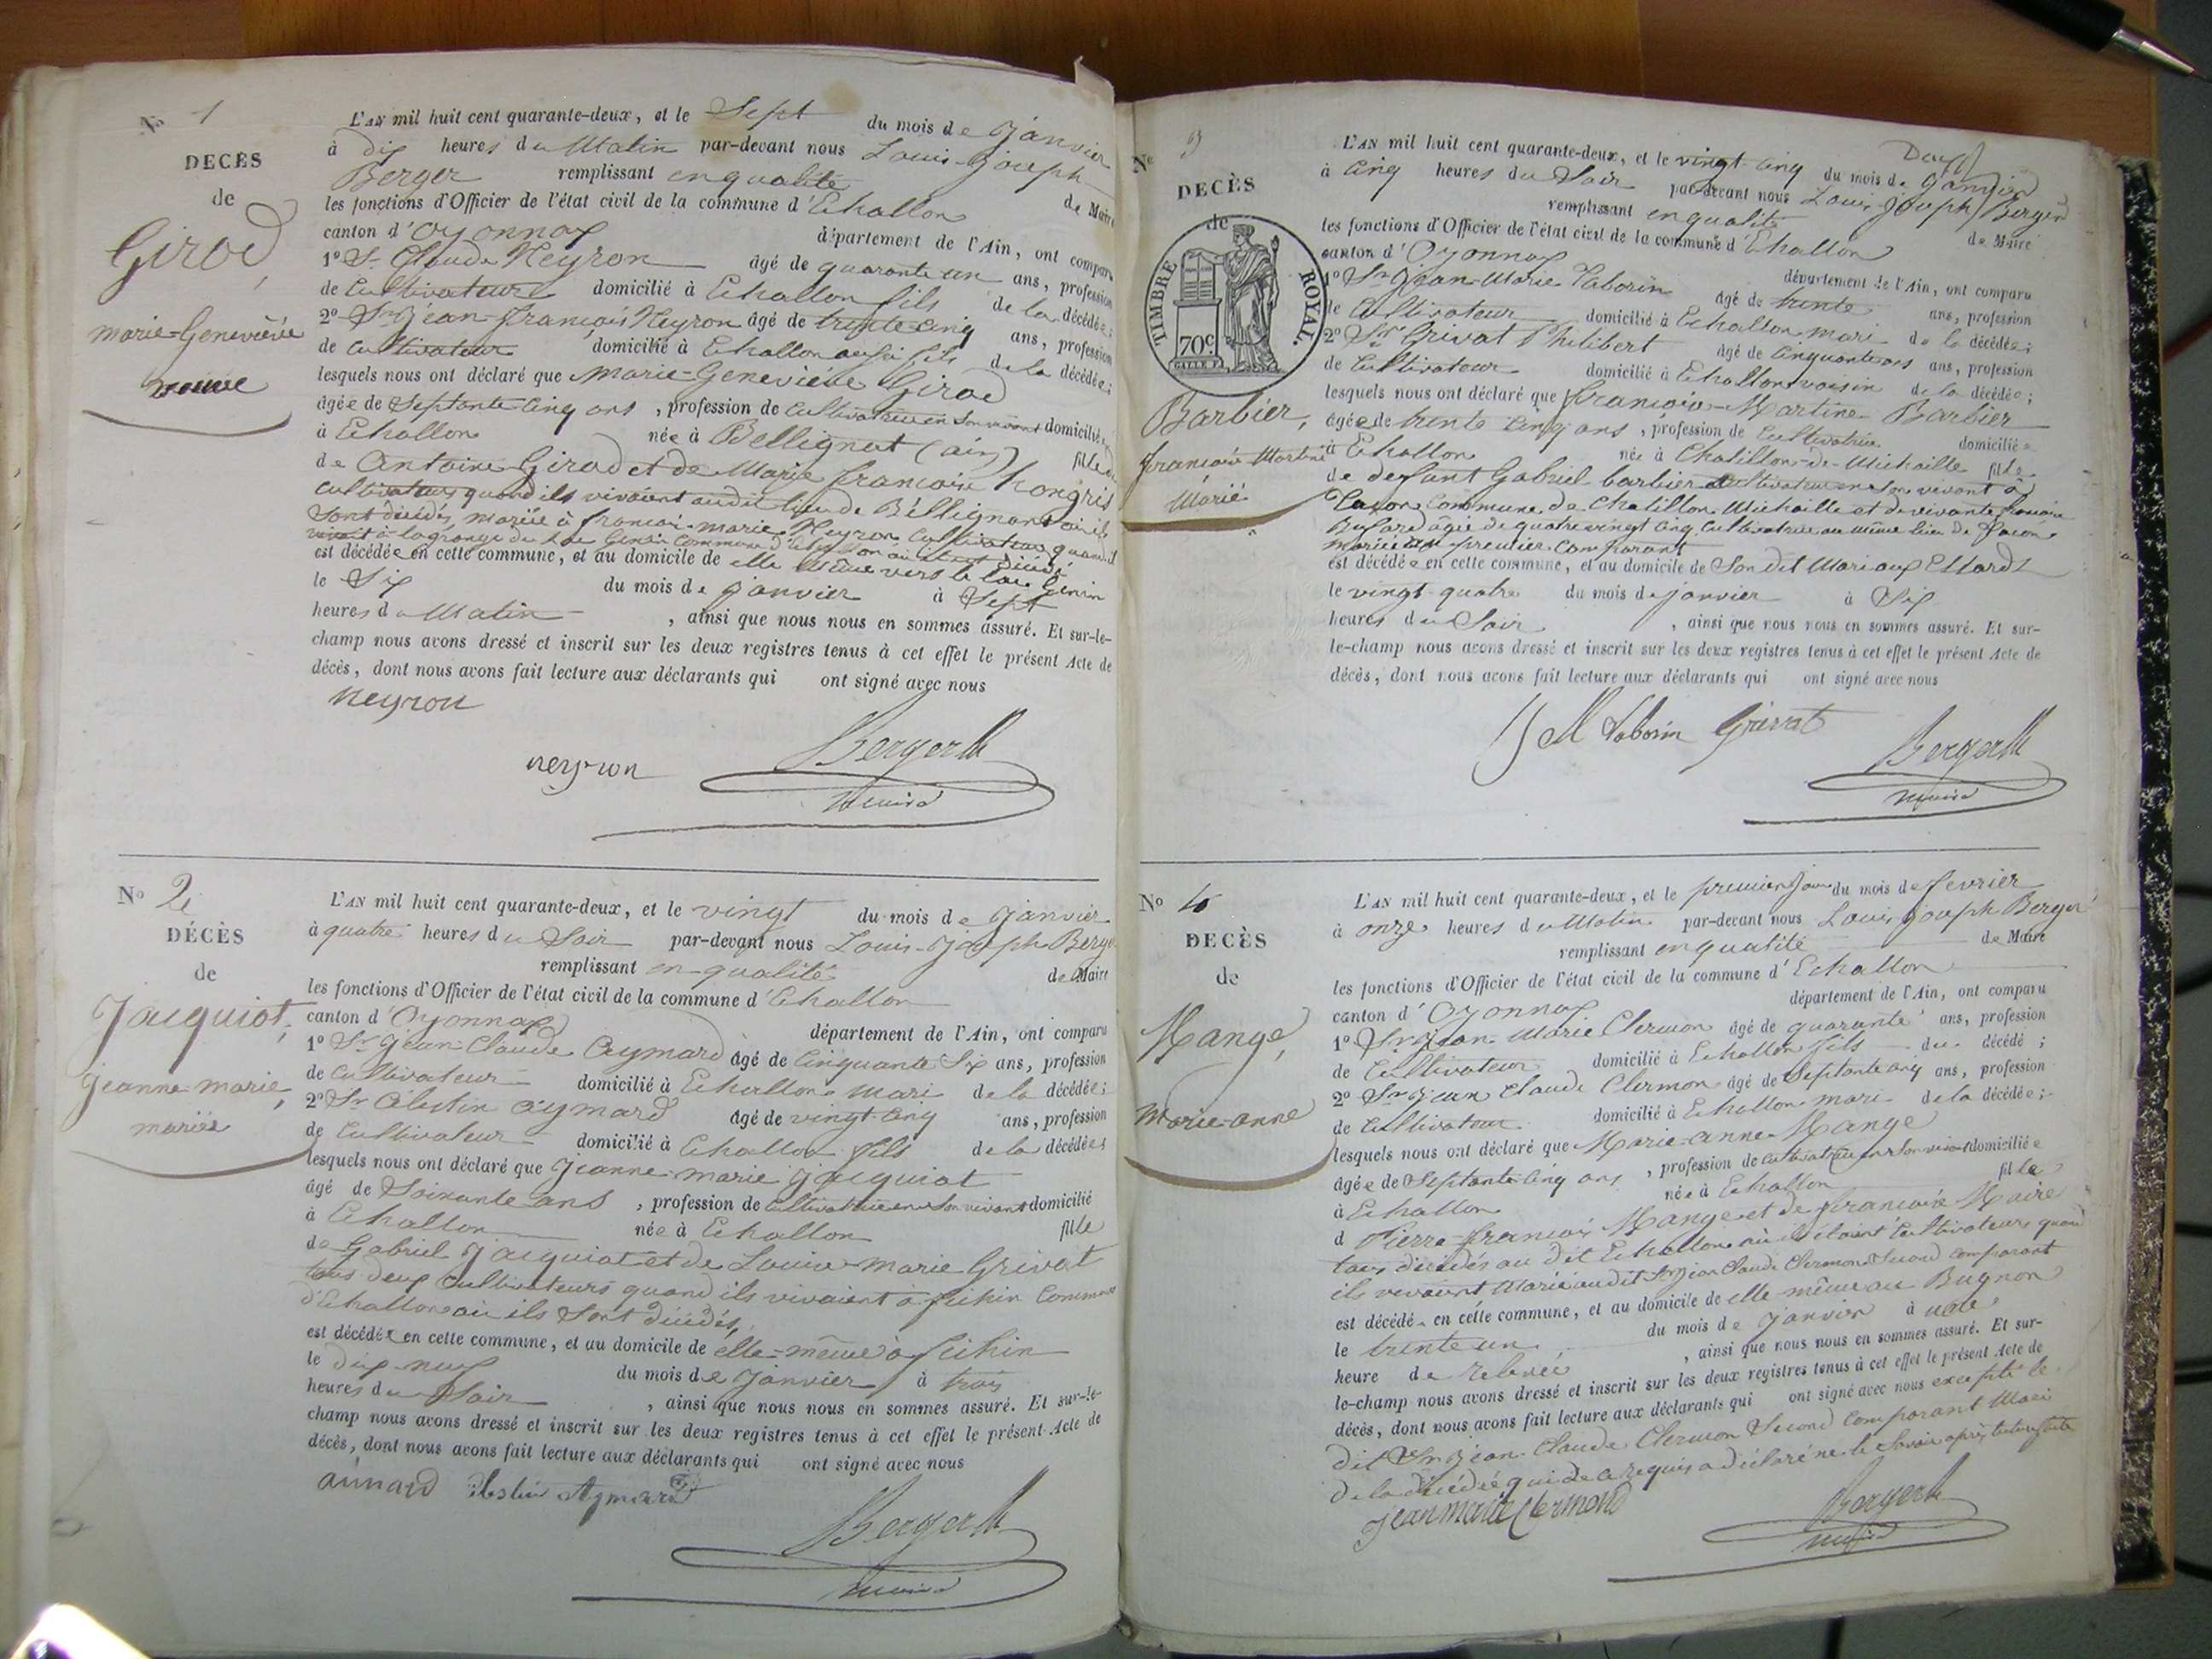 Nº 1
DECÈS
de
Girod,
marie-Geneviève
veuve
L'AN mil huit cent quarante-deux, et le Sept du mois de Janvier
à dix heures du Matin par-devant nous Louis-Joseph
Berger remplissant en qualité de Maire
les fonctions d'Officier de l'état civil de la commune d'Echallon
canton d'Oyonnax département de l'Ain, ont comparu
1º Sr Claude Neyron âgé de quarante un ans, profession
de Cultivateur domicilié à Echallon fils de la décédée;
2º Sr Jean-françois Neyron âgé de trente-cinq ans, profession
de cultivateur domicilié à Echallon aussi fils de la décédée;
lesquels nous ont déclaré que Marie-Geneviève Girod
âgée de Septante Cinq ans, profession de Cultivatrice en son vivant domiciliée
à Echallon née à Bellignat (ain) fille
de Antoine Girod et de Marie francoise hongris
Cultivateurs quand ils vivaient audit lieu de Bellignat où ils
sont décédés, mariée à francois-marie Neyron Cultivateur quand il
vivait à la grange du Lac Genin Commune d'Echallon où il est décédé
est décédée en cette commune, et au domicile de elle même vers le Lac Genin
le Six du mois de Janvier à Sept
heures du Matin, ainsi que nous nous en sommes assuré. Et sur-le-
champ nous avons dressé et inscrit sur les deux registres tenus à cet effet le présent Acte de
décès, dont nous avons fait lecture aux déclarants qui ont signé avec nous
neyron
neyron
Berger
maire
Nº 2
DÉCÈS
de
Jacquiot,
Jeanne-marie,
mariée
L'AN mil huit cent quarante-deux, et le vingt du mois de Janvier
à quatre heures du Soir par-devant nous Louis-Joseph Berger
remplissant en qualité de Maire
les fonctions d'Officier de l'état civil de la commune d'Echallon
canton d'Oyonnax département de l'Ain, ont comparu
1º Sr Jean-Claude Aymard âgé de Cinquante Six ans, profession
de Cultivateur domicilié à Echallon Mari de la décédée;
2º Sr Célestin Aymard âgé de vingt-cinq ans, profession
de Cultivateur domicilié à Echallon fils de la décédée;
lesquels nous ont déclaré que Jeanne-marie Jacquiot
âgé de Soixante ans, profession de Cultivatrice en son vivant domicilié
à Echallon née à Echallon fille
de Gabriel Jacquiot et de Louise-Marie Grivat
tous deux Cultivateurs quand ils vivaient à fichin Commune
d'Echallon où ils sont décédés,
est décédée en cette commune, et au domicile de elle-même à fichin
le dix-neuf du mois de Janvier à trois
heures du Soir, ainsi que nous nous en sommes assuré. Et sur-le-
champ nous avons dressé et inscrit sur les deux registres tenus à cet effet le présent Acte de
décès, dont nous avons fait lecture aux déclarants qui ont signé avec nous
aimard Célestin Aymard
Berger
maire
Deux
Nº 3
DECÈS
de
TIMBRE ROYAL.
70 c
Barbier,
francoise Martine
Mariée
L'AN mil huit cent quarante-deux, et le vingt cinq du mois de Janvier
à cinq heures du Soir par-devant nous Louis Joseph Berger
remplissant en qualité de Maire
les fonctions d'Officier de l'état civil de la commune d'Echallon
canton d'Oyonnax département de l'Ain, ont comparu
1º Sr Jean-Marie Taborin âgé de trente ans, profession
de Cultivateur domicilié à Echallon mari de la décédée;
2º Sr Grivat Philibert âgé de Cinquante ans ans, profession
de Cultivateur domicilié à Echallon voisin de la décédée;
lesquels nous ont déclaré que francoise-Martine Barbier
âgée de trente cinq ans, profession de Cultivatrice domiciliée
à Echallon née à Chatillon-de-Michaille fille
de defunt Gabriel barbier Cultivateur en son vivant à
Commune de Chatillon Michaille et de vivante francoise
agée de quatre vingt cinq Cultivatrice au même lieu de
mariée au premier Comparant
est décédée en cette commune, et au domicile de Son dit Mari aux
le vingt quatre du mois de janvier à Six
heures du Soir, ainsi que nous nous en sommes assuré. Et sur-
le-champ nous avons dressé et inscrit sur les deux registres tenus à cet effet le présent Acte de
décès, dont nous avons fait lecture aux déclarants qui ont signé avec nous
J M Taborin Grivat
Berger
maire
Nº 4
DECÈS
de
Mange,
Marie-anne
L'AN mil huit cent quarante-deux, et le premier Jour du mois de fevrier
à onze heures du Matin par-devant nous Louis Joseph Berger
remplissant en qualité de Maire
les fonctions d'Officier de l'état civil de la commune d'Echallon
canton d'Oyonnax département de l'Ain, ont comparu
1º Sr Jean-Marie Clermon âgé de quarante ans, profession
de Cultivateur domicilié à Echallon fils du décédé;
2º Sr Jean Claude Clermon âgé de Septante cinq ans, profession
de Cultivateur domicilié à Echallon mari de la décédée;
lesquels nous ont déclaré que Marie-anne Mange
âgée de Septante Cinq ans, profession de Cultivatrice en son vivant domiciliée
à Echallon née à Echallon fille
d Pierre-francois Mange et de francoise Maire
tous décédés au dit Echallon où ils étaient Cultivateurs quand
ils vivaient Mariée audit Sr Jean Claude Clermon Second comparant
est décédé en cette commune, et au domicile de elle même au Bugnon
le trente un du mois de Janvier à une
heure de relevée, ainsi que nous nous en sommes assuré. Et sur-
le-champ nous avons dressé et inscrit sur les deux registres tenus à cet effet le présent Acte de
décès, dont nous avons fait lecture aux déclarants qui ont signé avec nous excepté le
dit Sr Jean-Claude Clermon Second Comparant Mari
de la décédée qui de ce requis a déclaré ne le Savoir après lecture faite
jean marie Clermond
Berger
maire